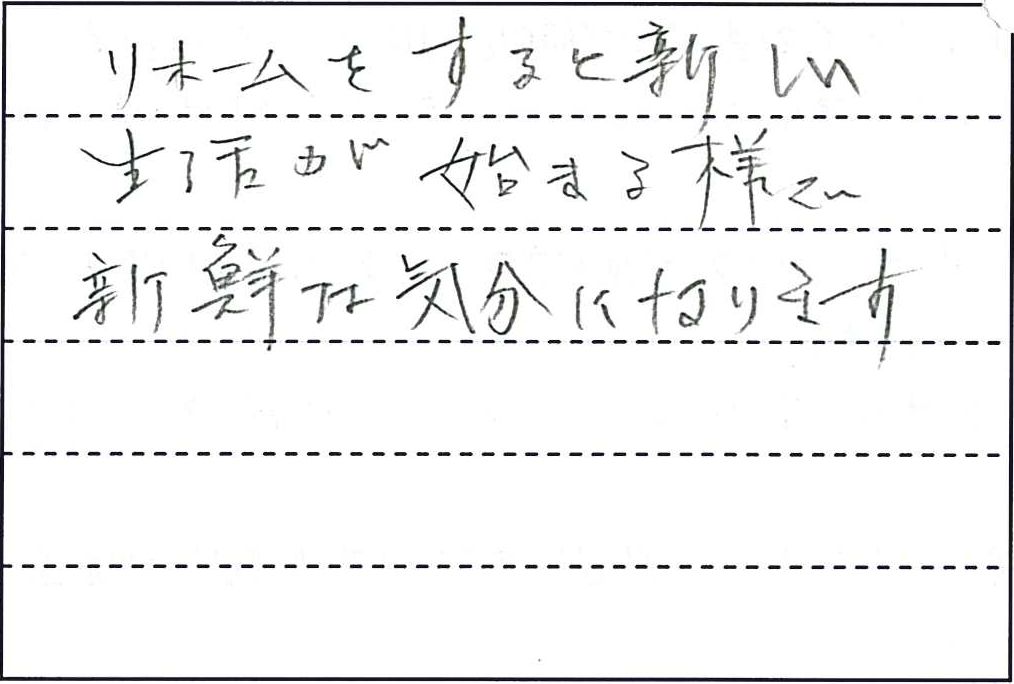 リホームをすると新しい
生活が始まる様で
新鮮な気分になります